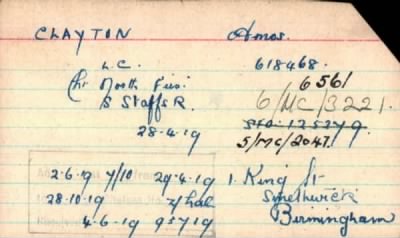 CLAYTON Amos.
L.C. 618468.
North Fus. 6561
S Staffs R. 6/MC/3221.
28-4-19 5/MC/2047.
2-6-19 7/10 29-4-19 1. King St
28-10-19 Smethwick
4-6-19 9-7-19 Birmingham